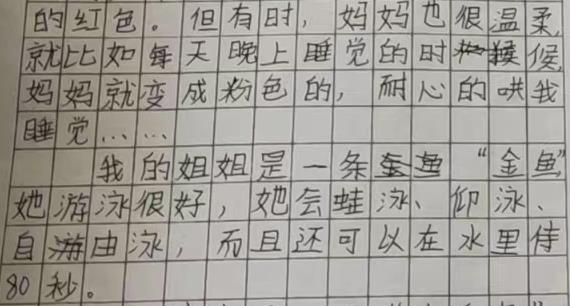 的红色。但有时，妈妈也很温柔，
就比如每天晚上睡觉的时候，
妈妈就变成粉色的，耐心的哄我
睡觉……
我的姐姐是一条“金鱼”，
她游泳很好，她会蛙泳、仰泳、
自由泳，而且还可以在水里待
80秒。